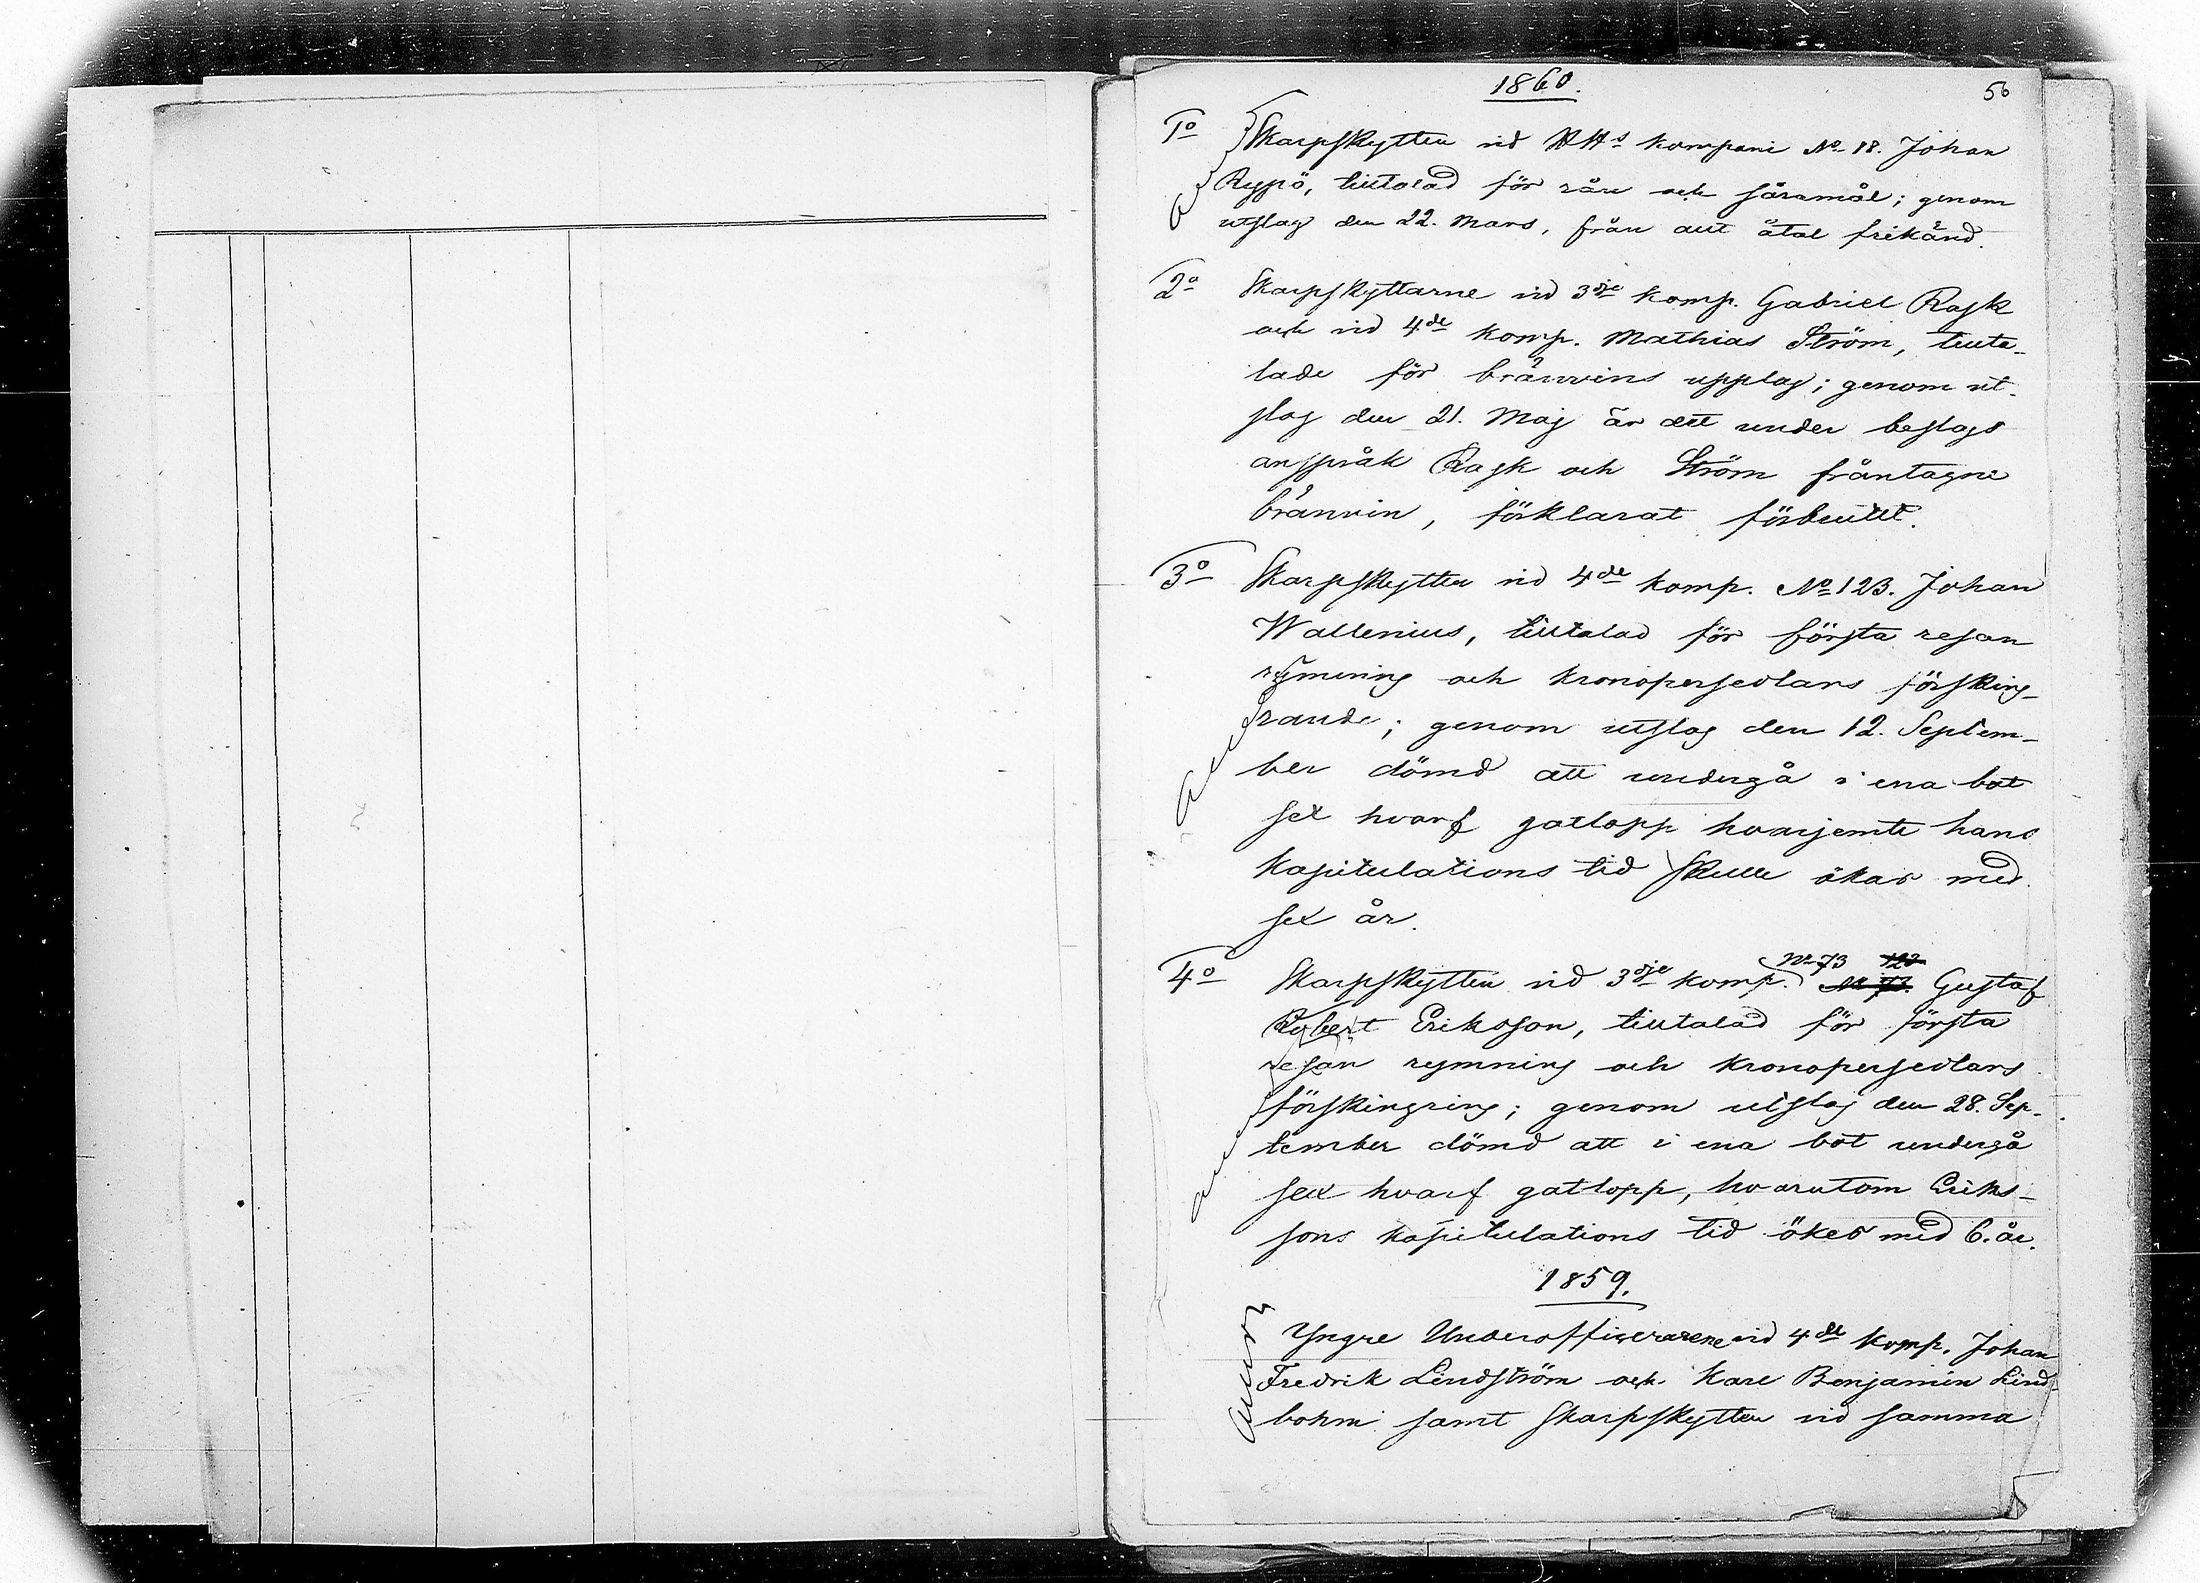 1860.
56
1o Skarpskytten vid HH:s kompani No 18. Johan
Rypö, tilltalad för rån och såramål; genom
utslag den 22. Mars, från allt åtal frikänd.
2o Skarpskyttarne vid 3dje komp. Gabriel Rask
och vid 4de komp. Mathias Ström, tillta-
lade för bränvins upplag; genom ut-
slag den 21. Maj är det under beslags
anspråk Rask och Ström fråntagne
bränvin, förklarat förbrutit.
3o Skarpskytten vid 4de komp. No 123. Johan
Wallenius, tilltalad för första resan
rymning och kronopersedlars försking-
rande; genom utslag den 12. Septem-
ber dömd att undergå i ena bot
sex hvarf gatlopp hvarjemte hans
kapitulations tid skulle ökas med
sex år.
No 73 123
4o Skarpskytten vid 3dje komp. No 73. Gustaf
Robert Eriksson, tilltalad för första
resan rymning och kronopersedlars
förskingring; genom utslag den 28. Sep-
tember dömd att i ena bot undergå
sex hvarf gatlopp, hvarutom Eriks-
sons kapitulations tid ökes med 6. år.
1859.
Yngre Underofficerarene vid 4de komp. Johan
Fredrik Lindström och Karl Benjamin Lind-
bohm samt skarpskytten vid samma